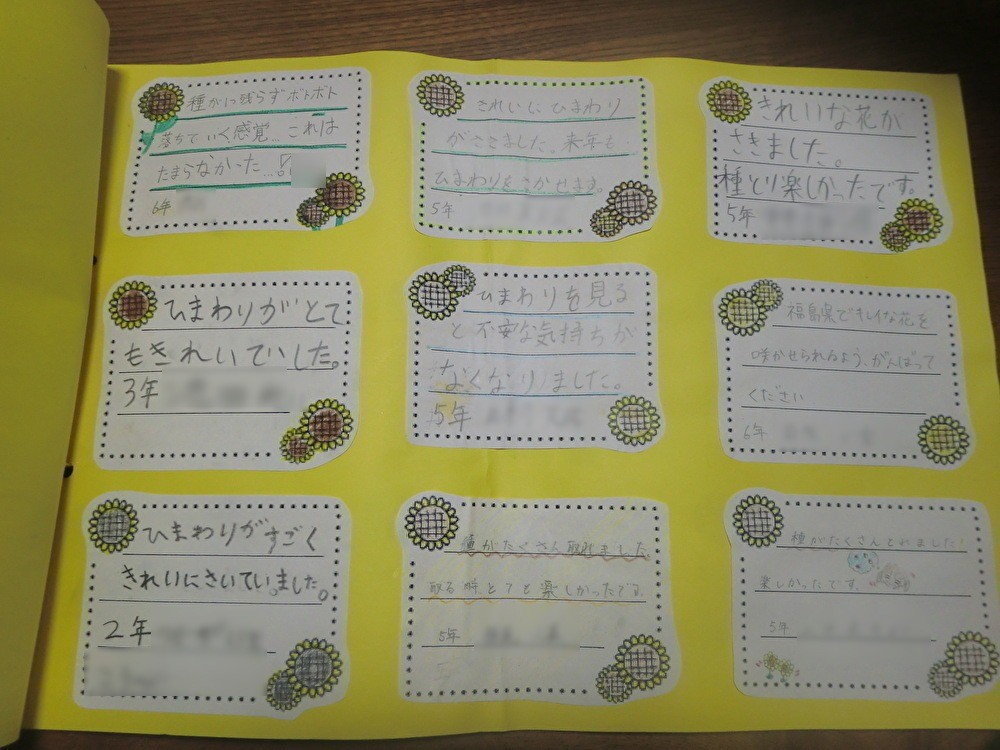 種が1つ残らずボトボト
落ちていく感覚…これは
たまらなかった…!
6年
きれいにひまわり
がさきました。来年も
ひまわりをさかせます。
5年
きれいな花が
さきました。
種とり楽しかったです。
5年
ひまわりがとて
もきれいでした。
3年
ひまわりを見る
と不安な気持ちが
なくなりました。
5年
福島県でキレイな花を
咲かせられるよう、がんばって
ください
6年
ひまわりがすごく
きれいにさいていました。
2年
種がたくさん取れました。
取る時とても楽しかったです。
5年
種がたくさんとれました!
楽しかったです。
5年